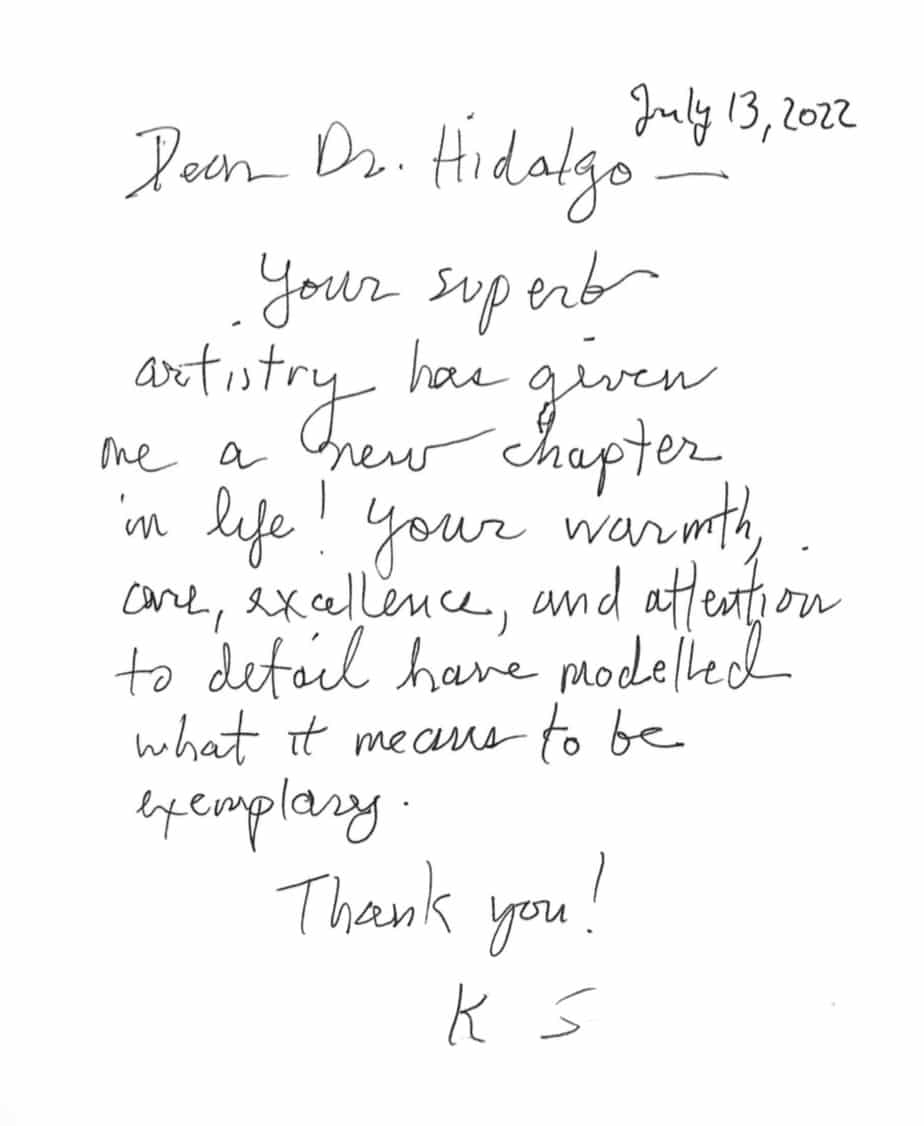 July 13, 2022
Dear Dr. Hidalgo —
Your superb
artistry has given
me a new chapter
in life! Your warmth,
care, excellence, and attention
to detail have modelled
what it means to be
exemplary.
Thank you!
K S